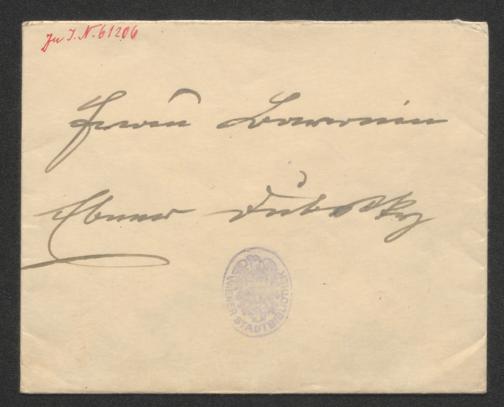 Zu I.N. 61206
Frau Baronin
Ebner Dubsky
WIENER STADTBIBLIOTHEK